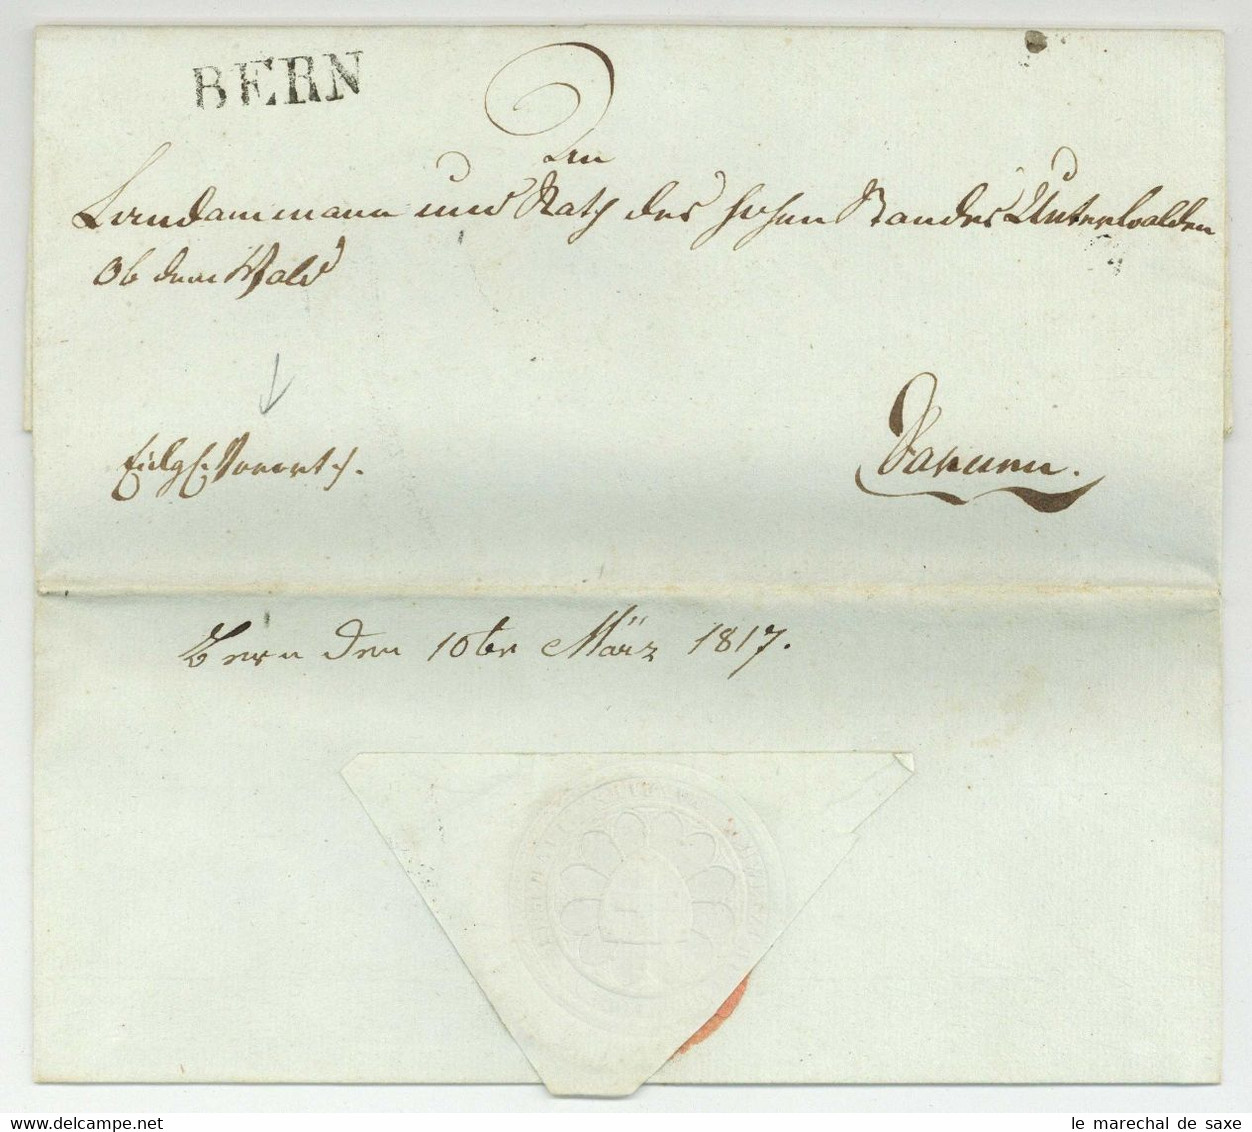 BERN
Den
Landammann und Rath des hohen Standes Unterwalden
Ob dem Wald
Eidgs. Vorort
Sarnen.
Bern den 10ten März 1817.
le marechal de saxe